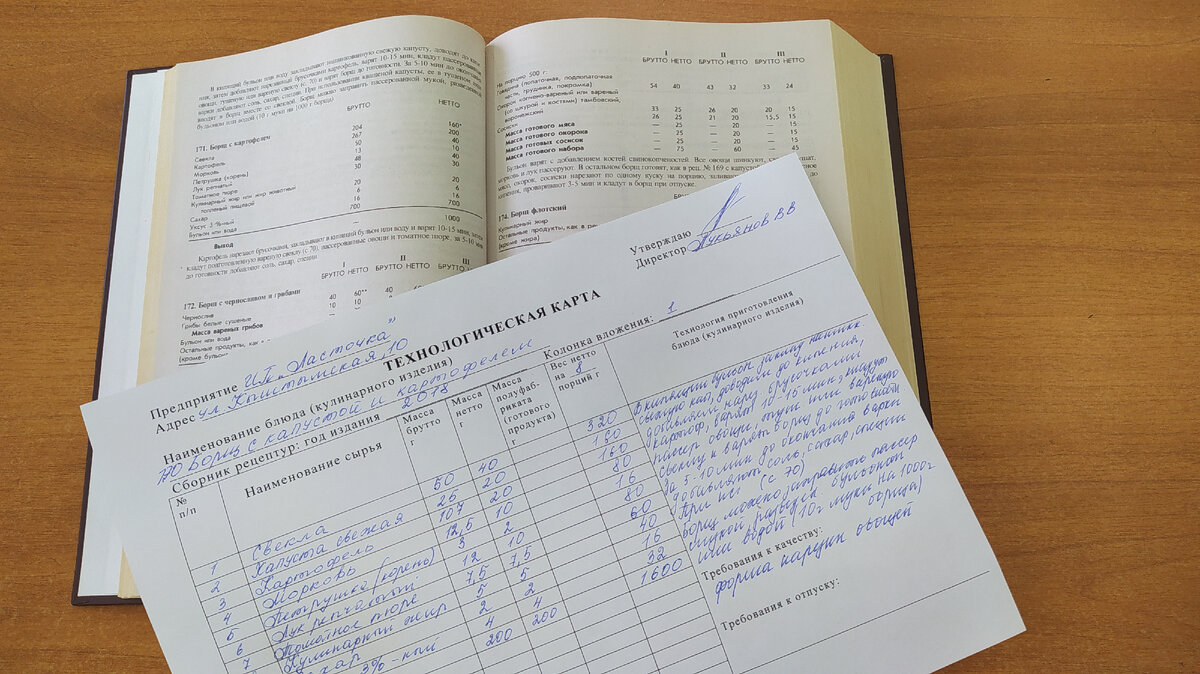 В кипящий бульон или воду закладывают нашинкованную свежую капусту, доводят до кипе-
ния, затем добавляют нарезанный брусочками картофель, варят 10-15 мин, кладут пассерованные
овощи, тушеную или вареную свеклу (с. 70) и варят борщ до готовности. За 5-10 мин до окончания
варки добавляют соль, сахар, специи. При использовании квашеной капусты, ее в тушеном виде
вводят в борщ вместе со свеклой. Борщ можно заправить пассерованной мукой, разведенной
бульоном или водой (10 г муки на 1000 г борща)
БРУТТО НЕТТО
171. Борщ с картофелем
Свекла 204 160*
Картофель 267 200
Морковь 50 40
Петрушка (корень) 13 10
Лук репчатый 48 40
Томатное пюре 30 30
Кулинарный жир или животный
топленый пищевой 20 20
Сахар 6 6
Уксус 3%-ный 16 16
Бульон или вода 700 700
Выход — 1000
Картофель нарезают брусочками, закладывают в кипящий бульон или воду и варят 10-15 мин, затем
кладут подготовленную вареную свеклу (с. 70), пассерованные овощи и томатное пюре, за 5-10 мин
до готовности добавляют соль, сахар, специи
I II III
БРУТТО НЕТТО БРУТТО НЕТТО БРУТТО НЕТТО
172. Борщ с черносливом и грибами
Чернослив 40 60** 40
Грибы белые сушеные 10 10
Масса вареных грибов
Бульон или вода
Остальные продукты, как в
(кроме бульо
I II III
БРУТТО НЕТТО БРУТТО НЕТТО БРУТТО НЕТТО
На порцию 500 г.
Говядина (лопаточная, подлопаточная
части, грудинка, покромка) 54 40 43 32 33 24
Окорок копчено-вареный или вареный
(со шкурой и костями) тамбовский,
воронежский 33 25 26 20 20 15
Сосиски 26 25 21 20 15,5 15
Масса готового мяса — 25 — 20 — 15
Масса готового окорока — 25 — 20 — 15
Масса готовых сосисок — 25 — 20 — 15
Масса готового набора — 75 — 60 — 45
Бульон варят с добавлением костей свинокопченостей. Все овощи шинкуют,
морковь и лук пассеруют. В остальном борщ готовят, как в рец. № 169 с капустой
мясо, окорок, сосиски нарезают по одному куску на порцию, заливают
кипения, проваривают 3-5 мин и кладут в борщ при отпуске.
174. Борщ флотский БРУТТО
Кулинарный жир
Остальные продукты, как в ре
(кроме жира)
Утверждаю
Директор Лукьянов В В
ТЕХНОЛОГИЧЕСКАЯ КАРТА
Предприятие И.П. „Ласточка"
Адрес ул. Кыштымская, 10
Наименование блюда (кулинарного изделия)
170 Борщ с капустой и картофелем
Сборник рецептур: год издания 2018 Колонка вложения: 1
№ п/п Наименование сырья Масса брутто г Масса нетто г Масса полуфаб-риката (готового продукта) г Вес нетто на 8 порций г Технология приготовления блюда (кулинарного изделия)
1 Свекла 50 40 320
2 Капуста свежая 25 20 160
3 Картофель 107 20 160
4 Морковь 12,5 10 80
5 Петрушка (корень) 3 2 16
6 Лук репчатый 12 10 80
7 Томатное пюре 7,5 7,5 60
Кулинарный жир 5 5 40
хар 2 2 16
3% -ный 4 4 32
200 200 1600
В кипящий бульон
свежую кап, доводят до кипения,
добавляют нарез брусочками
картоф, варят 10-15 мин, кладут
пассер овощи, тушен или вареную
свеклу и варят борщ до готовности
За 5-10 мин до окончания варки
добавляют соль, сахар, специи
(с 70)
Борщ можно заправить пассер
мукой, развед бульоном
или водой (10г муки на 1000г
борща)
Требования к качеству:
форма нарезки овощей
Требования к отпуску: